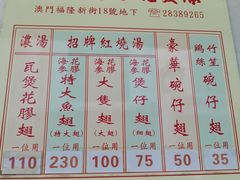 澳門福隆新街18號地下 ☎ 28389265
濃湯 招牌紅燒湯 豪華碗仔翅 鷄絲竹笙碗仔翅
瓦煲花膠翅 海參花膠特大魚翅 海參花膠大隻翅 花膠煲仔翅
一位用 (特大翅) 一位用 (大翅) 一位用 (細翅) 一位用 一位用
110 230 100 75 50 35